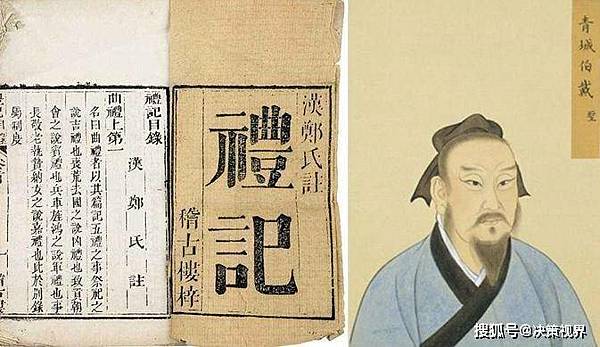 漢鄭氏註
禮記
稽古樓梓
禮記目錄
漢鄭氏註
曲禮上第一
名曰曲禮者以其篇記五禮之事祭祀之
說吉禮也喪荒去國之說凶禮也致貢朝
會之說賓禮也兵車旌鴻之說軍禮也事
長敬老執贄納女之說嘉禮也此於別錄
屬制度
青城伯戴聖
搜狐号@决策视界